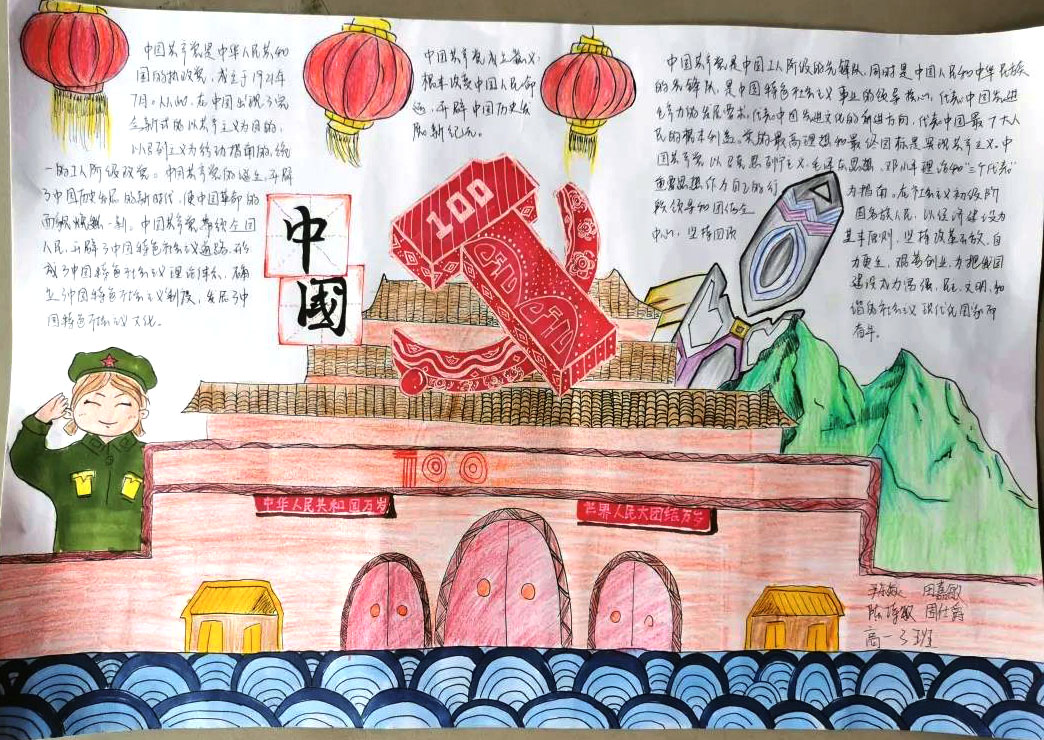 中国共产党是中华人民共和
国的执政党,成立于1921年
7月。从此,在中国出现了完
全新式的以共产主义为目的、
以马列主义为行动指南的统
一的工人阶级政党。中国共产党的诞生,开辟
了中国历史发展的新时代,使中国革命的
面貌焕然一新。中国共产党带领全国
人民,开辟了中国特色社会主义道路,形
成了中国特色社会主义理论体系,确
立了中国特色社会主义制度,发展了中
国特色社会主义文化。
中国共产党成立意义:
根本改变中国人民命
运,开辟中国历史发
展新纪元。
中国共产党是中国工人阶级的先锋队,同时是中国人民和中华民族
的先锋队,是中国特色社会主义事业的领导核心,代表中国先进
生产力的发展要求,代表中国先进文化的前进方向,代表中国最广大人
民的根本利益。党的最高理想和最终目标是实现共产主义。中
国共产党以马克思列宁主义、毛泽东思想、邓小平理论和“三个代表”
重要思想作为自己的行 为指南。在社会主义初级阶
段领导和团结全 国各族人民,以经济建设为
中心,坚持四项 基本原则,坚持改革开放,自
力更生,艰苦创业,为把我国
建设成为富强、民主、文明、和
谐的社会主义现代化国家而
奋斗。
100
中
国
100
中华人民共和国万岁
世界人民大团结万岁
田嘉敏
高一3班